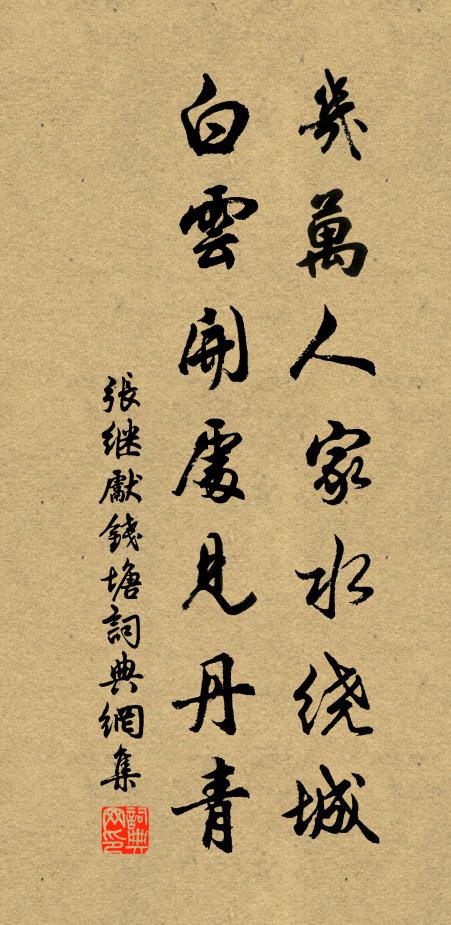 幾萬人家水绕城
白雲開處見丹青
張继獻錢塘詞典網集
詞典網印